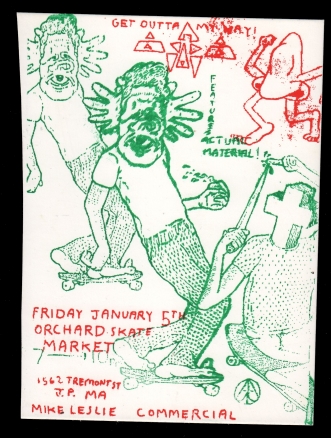 GET OUTTA MY WAY!
FEATURES
ACTUAL
MATERIAL!
FRIDAY JANUARY 5TH
ORCHARD SKATE
MARKET
1562 TREMONT ST
J.P. MA
MIKE LESLIE COMMERCIAL